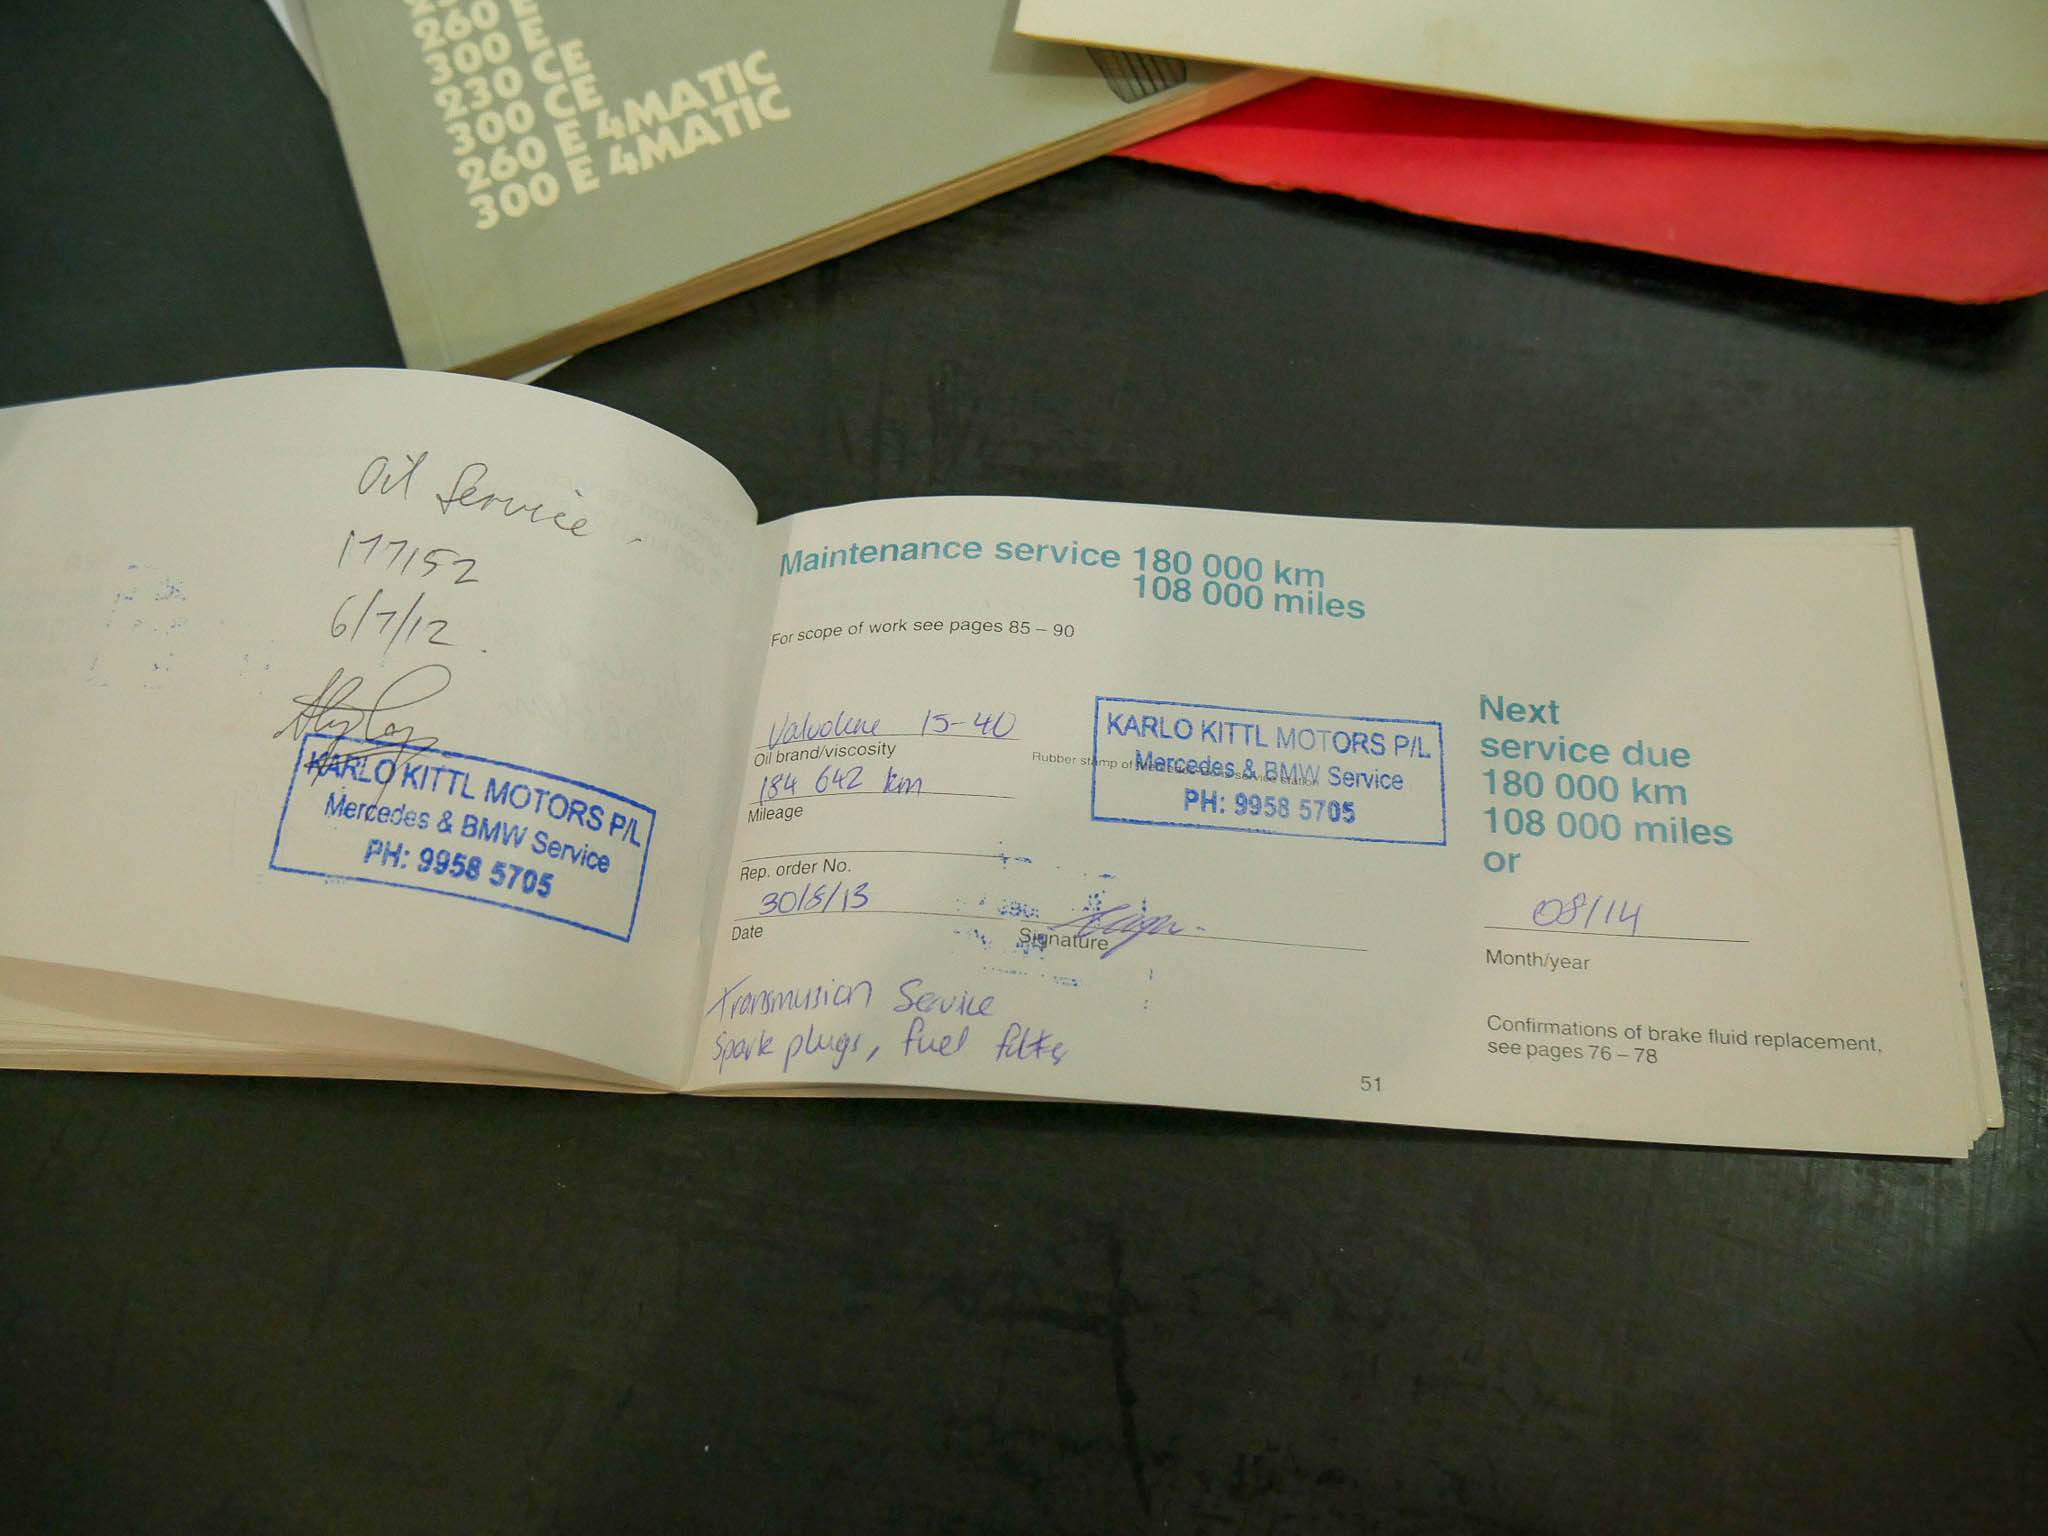 260 E
300 E
230 CE
300 CE
260 E 4MATIC
300 E 4MATIC
Oil Service.
177152
6/7/12.
KARLO KITTL MOTORS P/L
Mercedes & BMW Service
PH: 9958 5705
Maintenance service 180 000 km
108 000 miles
For scope of work see pages 85 – 90
Valvolene 15-40
Oil brand/viscosity
184 642 km
Mileage
Rep. order No.
30/8/13
Date
Rubber stamp of Mercedes-Benz service station
KARLO KITTL MOTORS P/L
Mercedes & BMW Service
PH: 9958 5705
Signature
Transmission Service
Spark plugs, fuel filter
Next
service due
180 000 km
108 000 miles
or
08/14
Month/year
Confirmations of brake fluid replacement,
see pages 76 – 78
51